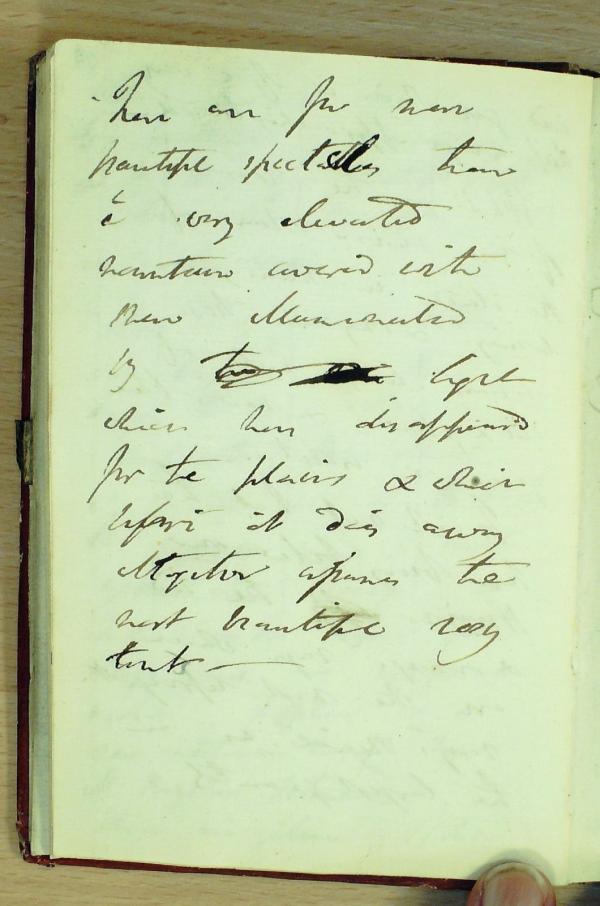 There are few more
beautiful spectacles than
a very elevated
mountain covered with
snow illuminated
by the light
which has disappeared
for the plains & which
before it dies away
altogether assumes the
most beautiful rosy
tint —